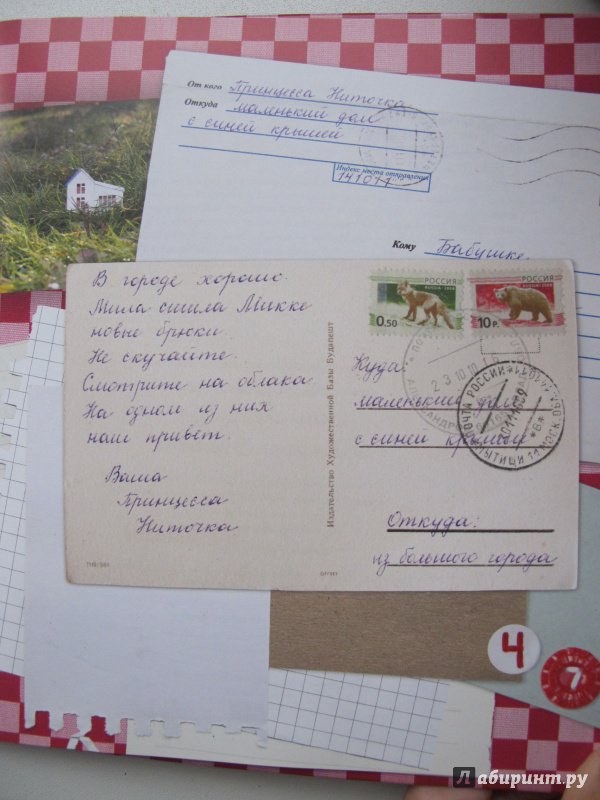 От кого Принцесса Ниточка
Откуда маленький дом
с синей крышей
Индекс места отправления
141011
Кому Бабушке
В городе хорошо.
Мила сшила Микке
новые брюки.
Не скучайте.
Смотрите на облака.
На одном из них
наш привет.
Ваша
Принцесса
Ниточка
Издательство Художественной Базы Будапешт
РОССИЯ
RUSSIA 2008
0.50
РОССИЯ
RUSSIA 2008
10 Р.
23 10 10
ПОЧТА РОССИИ
МЫТИЩИ 11 МОСК. ОБЛ.
141011
Куда:
маленький дом
с синей крышей
Откуда:
из большого города
4
7
Лабиринт.ру